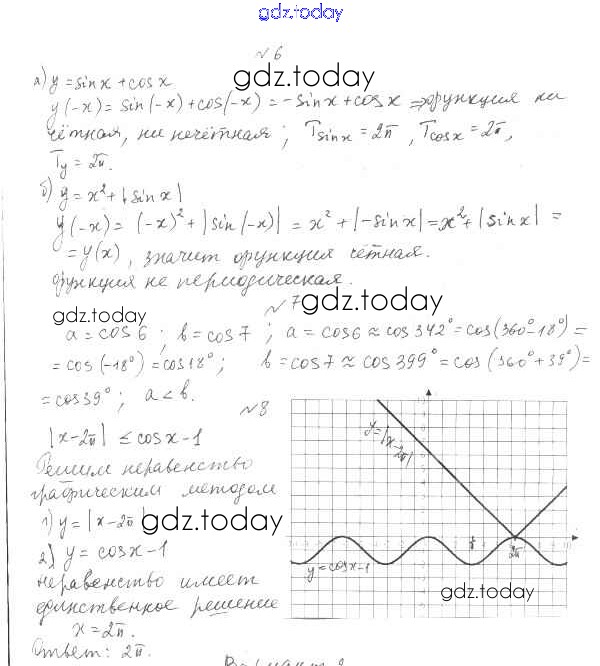 gdz.today
№6
а) y = sin x + cos x
gdz.today
y(-x) = sin(-x) + cos(-x) = -sin x + cos x ⇒ функция ни
чётная, ни нечётная; T sin x = 2π, T cos x = 2π,
Ty = 2π.
б) y = x² + |sin x|
y(-x) = (-x)² + |sin(-x)| = x² + |-sin x| = x² + |sin x| =
= y(x), значит функция чётная.
функция не периодическая.
№7
gdz.today
gdz.today
a = cos 6; b = cos 7; a = cos 6 ≈ cos 342° = cos(360°-18°) =
= cos(-18°) = cos 18°; b = cos 7 ≈ cos 399° = cos(360°+39°) =
= cos 39°; a < b.
№8
|x-2π| ≤ cos x - 1
Решим неравенство
графическим методом
1) y = |x-2π|
gdz.today
2) y = cos x - 1
неравенство имеет
единственное решение
x = 2π.
Ответ: 2π.
y=|x-2π|
2π
y=cosx-1
gdz.today